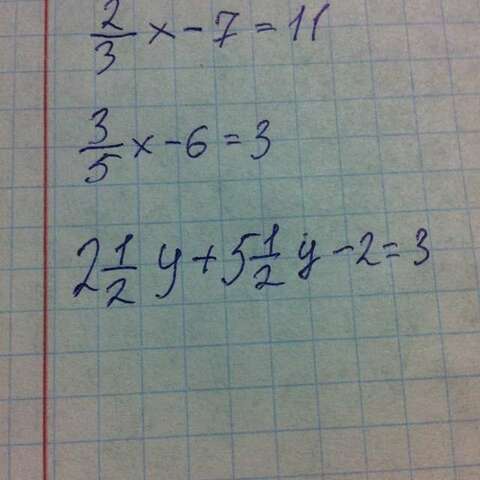 2/3 x - 7 = 11
3/5 x - 6 = 3
2 1/2 y + 5 1/2 y - 2 = 3